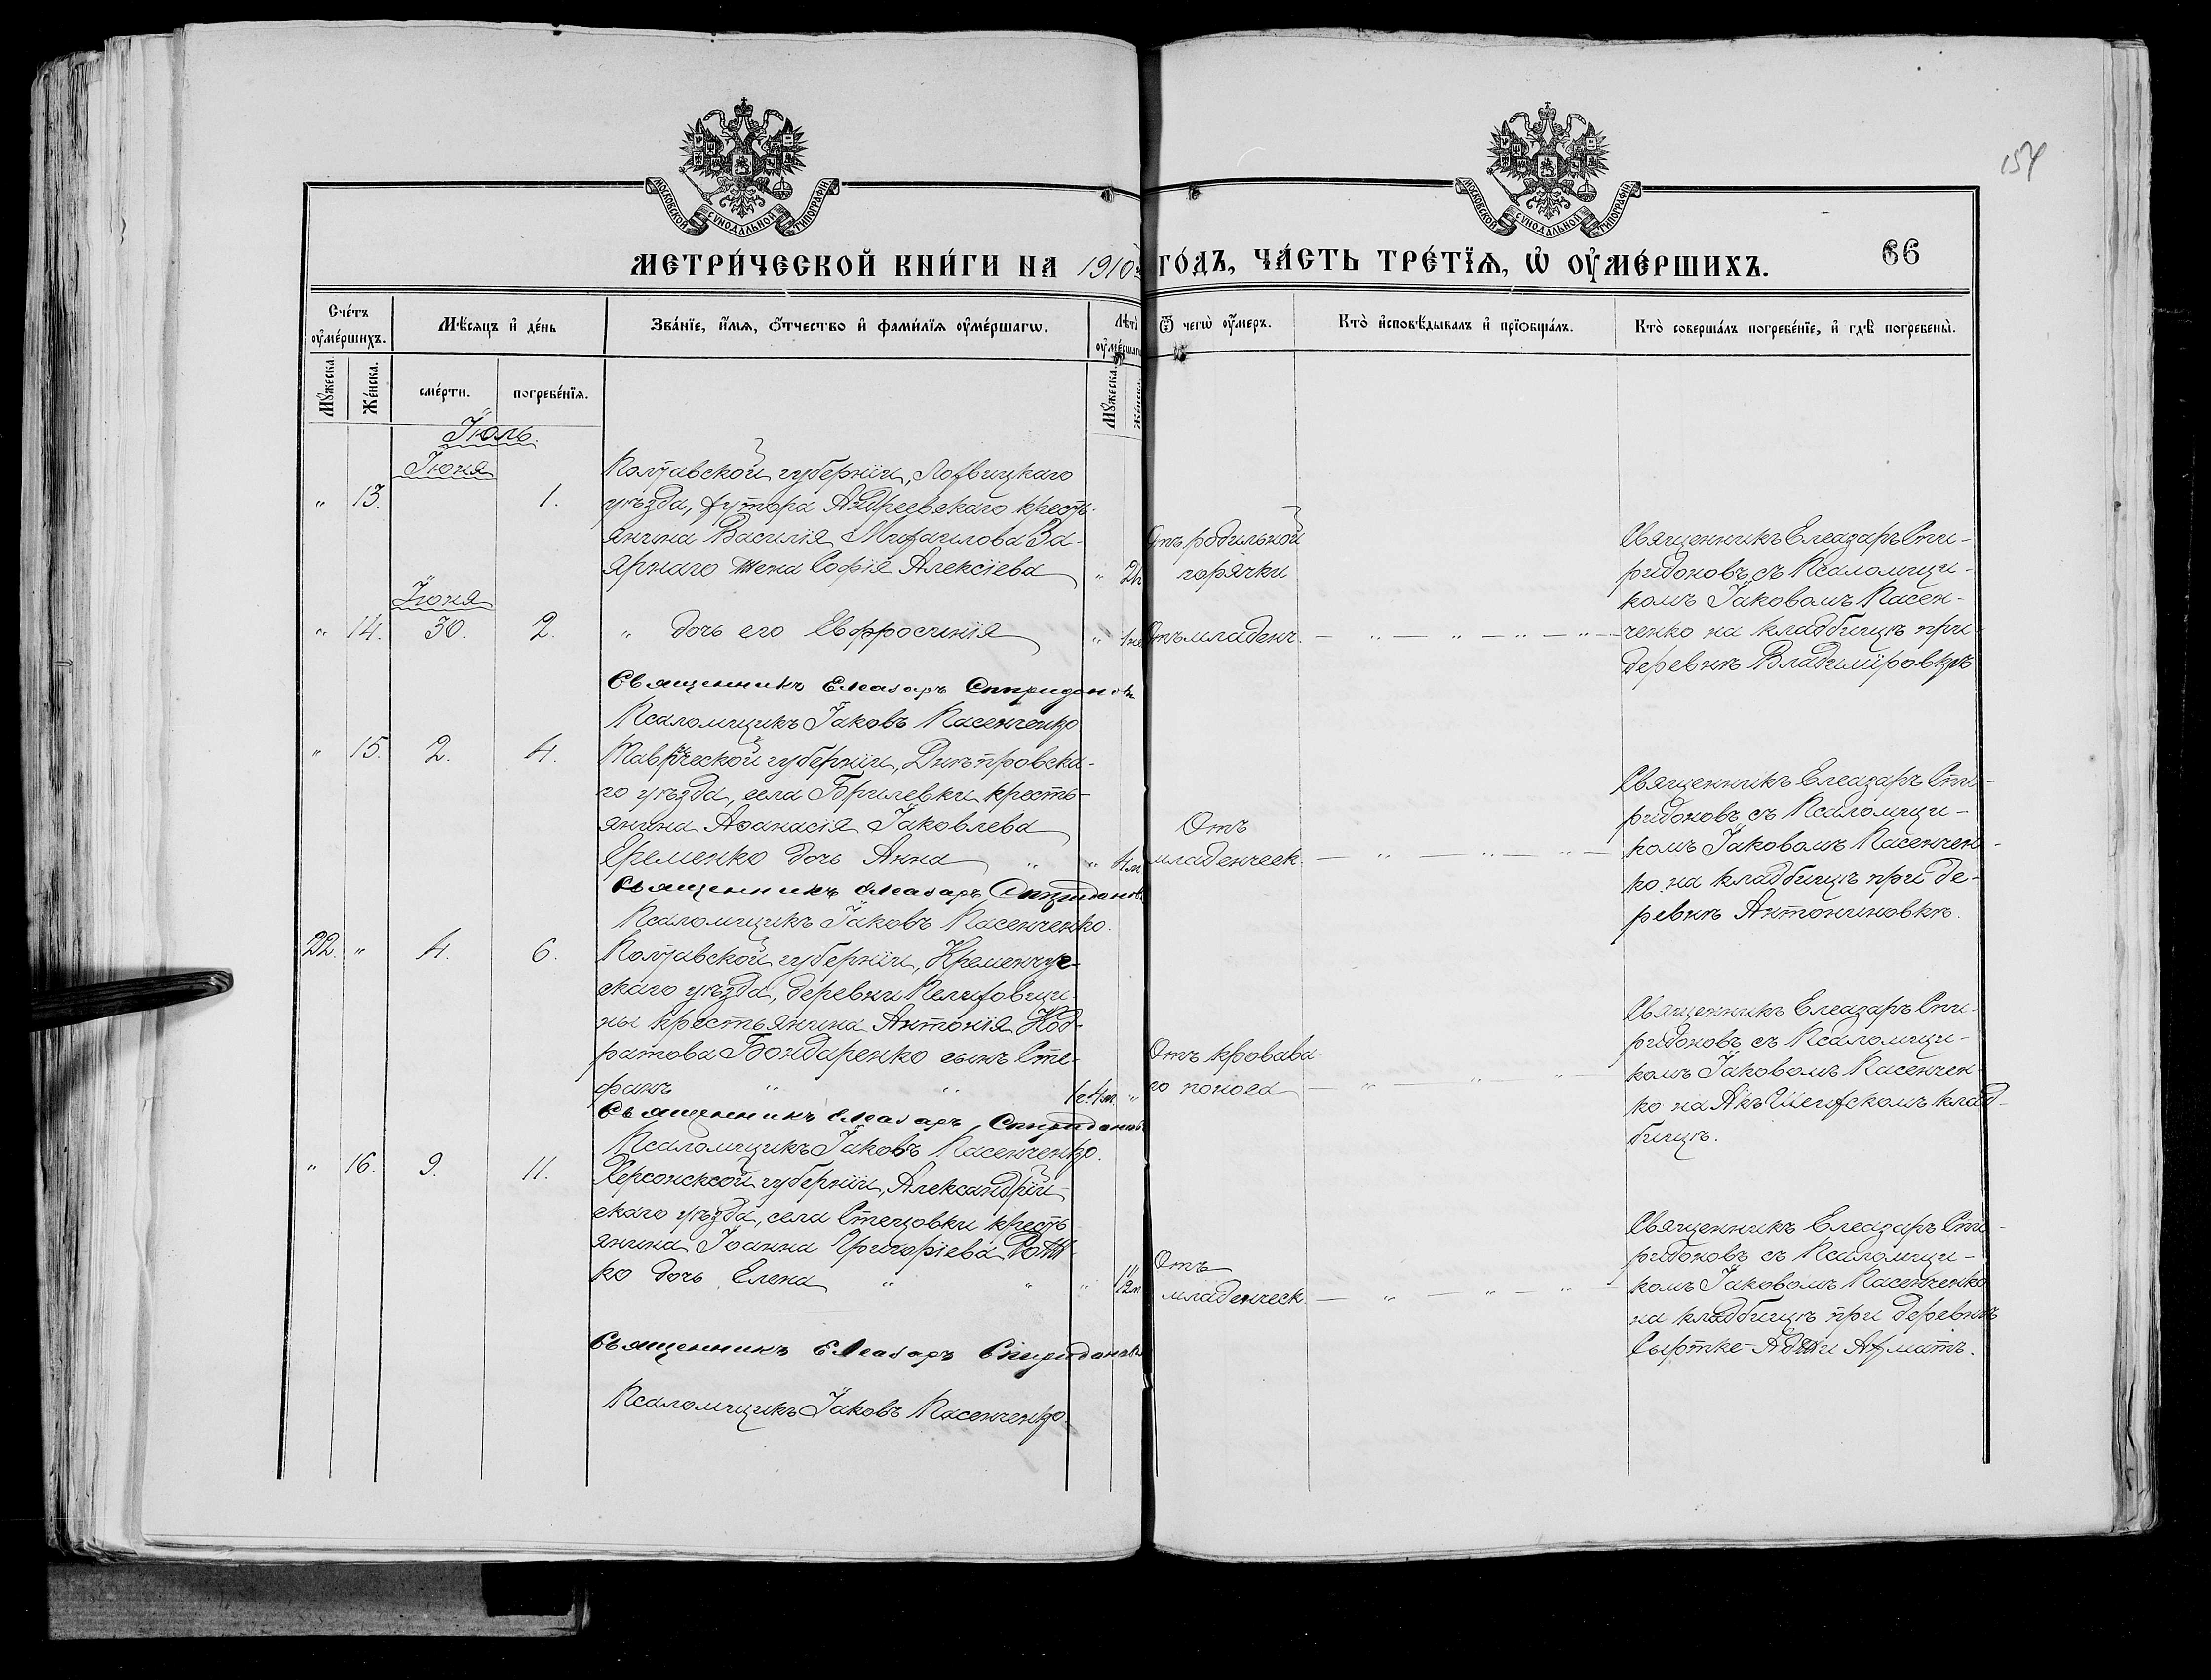 154
МОСКОВСКОЙ СУНОДАЛЬНОЙ ТИПОГРАФІИ
МОСКОВСКОЙ СУНОДАЛЬНОЙ ТИПОГРАФІИ
МЕТРИ́ЧЕСКОЙ КНИ́ГИ НА 1910 ГО́ДЪ, ЧА́СТЬ ТРЕ́ТЇѦ, Ѡ ОУ҆МЕ́РШИХЪ.
66
Сче́тъ оу҆ме́ршихъ.
Мѣ́сяцъ и҆ де́нь
Зва́нїе, и҆́мѧ, ѻ҆́тчество и҆ фами́лїѧ оу҆ме́ршагѡ.
Лѣ́тъ оу҆ме́ршагѡ
Ѿ чегѡ̀ оу҆́меръ.
Кто̀ и҆сповѣ́дывалъ и҆ прїѡбща́лъ.
Кто̀ соверша́лъ погребе́нїе, и҆ гдѣ̀ погребены̀.
Мꙋ́жеска.
Же́нска.
сме́рти.
погребе́нїѧ.
Мꙋ́жеска.
Же́нска.
Іюль.
Іюня
" 13. 1.
Полтавской губерніи, Лохвицкаго
уѣзда, хутора Андреевскаго кресть-
янина Василія Михаилова За-
ярнаго жена Софія Алексіева "
Отъ родильной
горячки
Священникъ Елеазаръ Спи-
ридоновъ съ Псаломщи-
комъ Іаковомъ Пасен-
ченко на кладбищѣ при
деревнѣ Владиміровкѣ
Іюня
" 14. 30. 2.
" дочь его Евфросинія "
Отъ младенч.
Священникъ Елеазаръ Спиридоновъ
Псаломщикъ Іаковъ Пасенченко
" 15. 2. 4.
Таврической губерніи, Днѣпровска-
го уѣзда, села Брилевки кресть-
янина Аѳанасія Іаковлева
Еременко дочь Анна " " 4м
Отъ
младенческ.
Священникъ Елеазаръ Спи-
ридоновъ съ Псаломщи-
комъ Іаковомъ Пасенчен-
ко на кладбищѣ при де-
ревнѣ Антониновкѣ.
Священникъ Елеазаръ Спиридоновъ
Псаломщикъ Іаковъ Пасенченко.
22. " 4. 6.
Полтавской губерніи, Кременчуг-
скаго уѣзда, деревни Пелиховщи-
ны крестьянина Антонія Код-
ратова Бондаренко сынъ Сте-
фанъ " " 1г.4м. "
Отъ кровава-
го поноса
Священникъ Елеазаръ Спи-
ридоновъ съ Псаломщи-
комъ Іаковомъ Пасенчен-
ко на Акъ Шехскомъ клад-
бищѣ.
Священникъ Елеазаръ Спиридоновъ
Псаломщикъ Іаковъ Пасенченко.
" 16. 9. 11.
Херсонской губерніи, Александрій-
скаго уѣзда, села Стецовки кресть-
янина Іоанна Григоріева
ко дочь Елена " " "
Отъ
младенческ.
Священникъ Елеазаръ Спи-
ридоновъ съ Псаломщи-
комъ Іаковомъ Пасенченко
на кладбищѣ при деревнѣ
Сыртке-Аджи Ахматъ.
Священникъ Елеазаръ Спиридоновъ
Псаломщикъ Іаковъ Пасенченко.